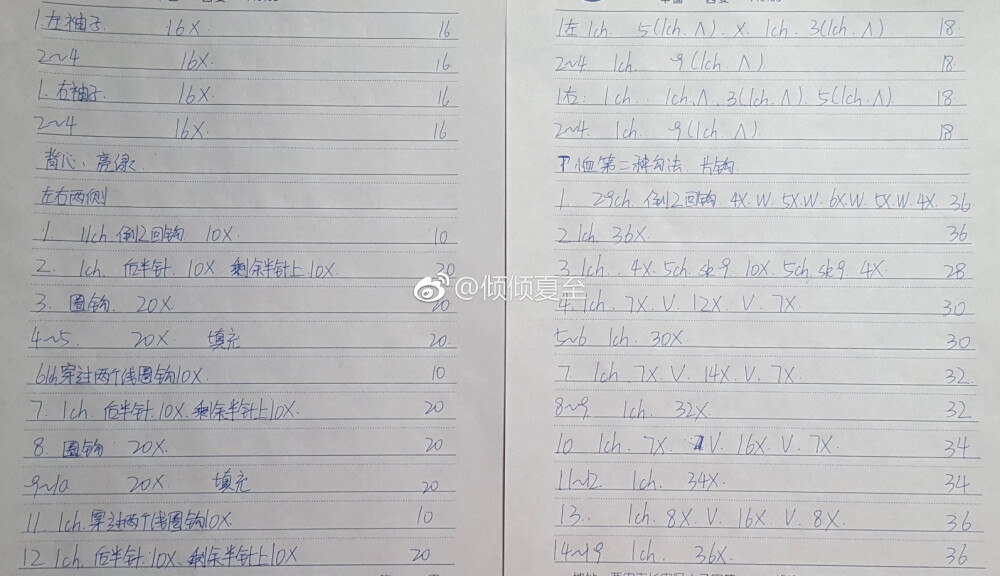 1.左袖子 16X 16
2~4 16X. 16
1.右袖子. 16X. 16
2~4 16X. 16
背心:亮绿.
左右两侧
1. 11ch.倒2回钩. 10X. 10
2. 1ch. 后半针. 10X. 剩余半针上10X. 20
3. 圈钩. 20X. 20
4~5. 20X 填充 20.
6 1ch穿过两个线圈钩10X. 10
7. 1ch. 后半针.10X.剩余半针上10X. 20
8. 圈钩. 20X. 20
9~10 20X. 填充 20
11. 1ch.穿过两个线圈钩10X. 10
12 1ch. 后半针.10X.剩余半针上10X 20
1左 1ch. 5(1ch.Λ). X. 1ch. 3(1ch.Λ) 18.
2~4. 1ch. 9(1ch.Λ) 18.
1右: 1ch. 1ch.Λ. 3(1ch.Λ). 5(1ch.Λ). 18.
2~4. 1ch. 9(1ch.Λ). 18
T恤第二种勾法. 片钩.
1 29ch. 倒2回钩. 4X.W. 5X.W. 6X.W. 5X.W.4X. 36
2 1ch. 36X. 36
3. 1ch. 4X. 5ch. sk9. 10X. 5ch. sk9. 4X. 28
4. 1ch. 7X. V. 12X. V. 7X. 30
5~6 1ch. 30X. 30
7 1ch. 7X. V. 14X. V. 7X. 32.
8~9 1ch. 32X. 32
10 1ch. 7X. V. 16X. V. 7X. 34
11~12. 1ch. 34X. 34
13. 1ch. 8X. V. 16X. V. 8X. 36
14~19 1ch. 36X. 36
@倾倾夏至